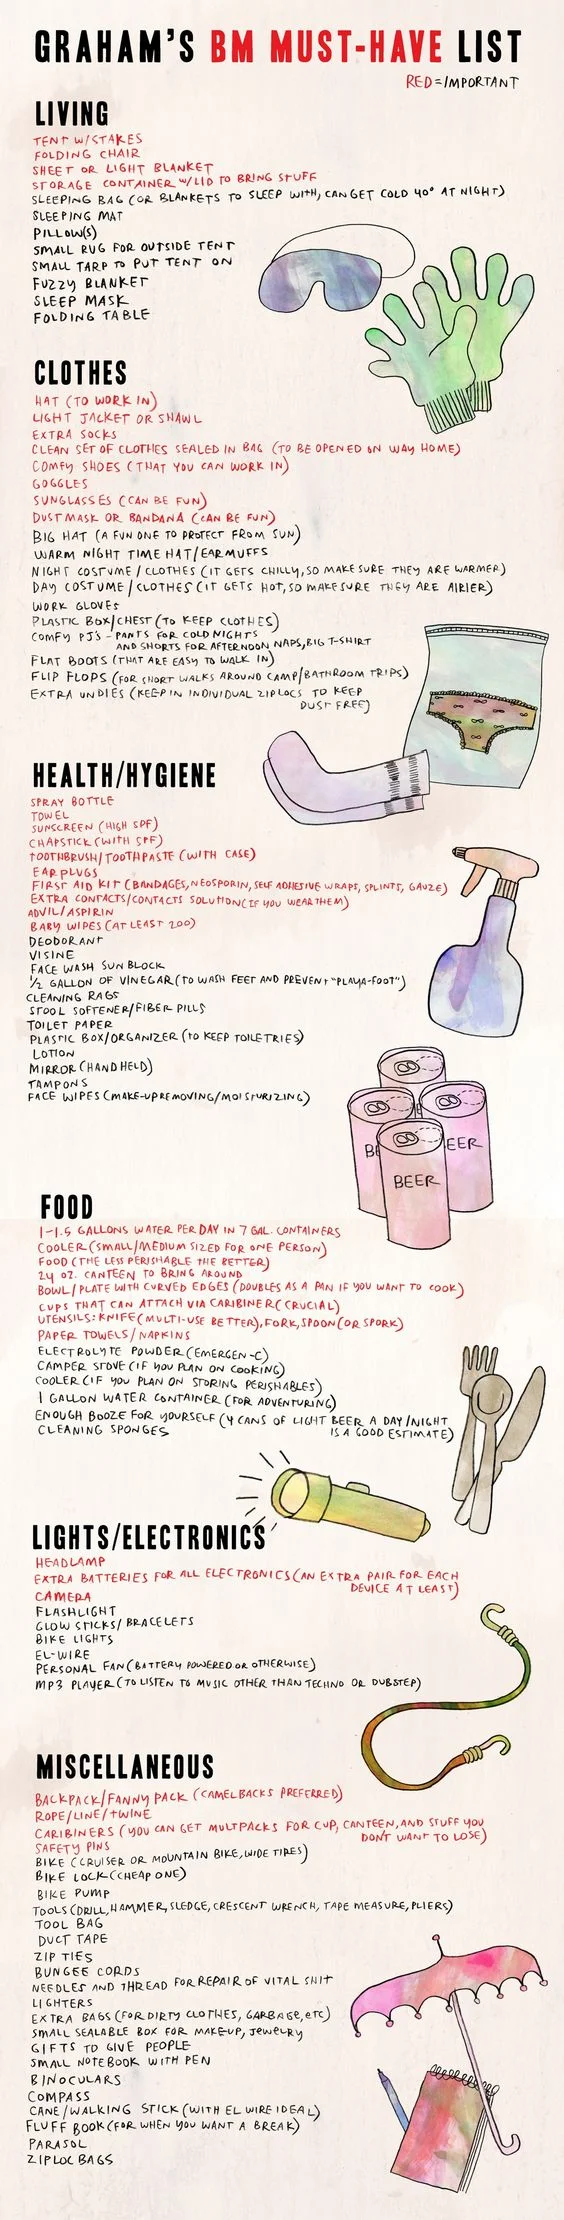 GRAHAM'S BM MUST-HAVE LIST
RED=IMPORTANT
LIVING
TENT W/STAKES
FOLDING CHAIR
SHEET OR LIGHT BLANKET
STORAGE CONTAINER W/LID TO BRING STUFF
SLEEPING BAG (OR BLANKETS TO SLEEP WITH, CAN GET COLD 40° AT NIGHT)
SLEEPING MAT
PILLOW(S)
SMALL RUG FOR OUTSIDE TENT
SMALL TARP TO PUT TENT ON
FUZZY BLANKET
SLEEP MASK
FOLDING TABLE
CLOTHES
HAT (TO WORK IN)
LIGHT JACKET OR SHAWL
EXTRA SOCKS
CLEAN SET OF CLOTHES SEALED IN BAG (TO BE OPENED ON WAY HOME)
COMFY SHOES (THAT YOU CAN WORK IN)
GOGGLES
SUNGLASSES (CAN BE FUN)
DUST MASK OR BANDANA (CAN BE FUN)
BIG HAT (A FUN ONE TO PROTECT FROM SUN)
WARM NIGHT TIME HAT/EARMUFFS
NIGHT COSTUME/CLOTHES (IT GETS CHILLY, SO MAKE SURE THEY ARE WARMER)
DAY COSTUME/CLOTHES (IT GETS HOT, SO MAKE SURE THEY ARE AIRIER)
WORK GLOVES
PLASTIC BOX/CHEST (TO KEEP CLOTHES)
COMFY PJ'S - PANTS FOR COLD NIGHTS
AND SHORTS FOR AFTERNOON NAPS, BIG T-SHIRT
FLAT BOOTS (THAT ARE EASY TO WALK IN)
FLIP FLOPS (FOR SHORT WALKS AROUND CAMP/BATHROOM TRIPS)
EXTRA UNDIES (KEEP IN INDIVIDUAL ZIPLOCS TO KEEP
DUST FREE)
HEALTH/HYGIENE
SPRAY BOTTLE
TOWEL
SUNSCREEN (HIGH SPF)
CHAPSTICK (WITH SPF)
TOOTHBRUSH/TOOTHPASTE (WITH CASE)
EARPLUGS
FIRST AID KIT (BANDAGES, NEOSPORIN, SELF ADHESIVE WRAPS, SPLINTS, GAUZE)
EXTRA CONTACTS/CONTACTS SOLUTION (IF YOU WEAR THEM)
ADVIL/ASPIRIN
BABY WIPES (AT LEAST 200)
DEODORANT
VISINE
FACE WASH SUN BLOCK
1/2 GALLON OF VINEGAR (TO WASH FEET AND PREVENT "PLAYA-FOOT")
CLEANING RAGS
STOOL SOFTENER/FIBER PILLS
TOILET PAPER
PLASTIC BOX/ORGANIZER (TO KEEP TOILETRIES)
LOTION
MIRROR (HANDHELD)
TAMPONS
FACE WIPES (MAKE-UP REMOVING/MOISTURIZING)
BEER
EER
BEER
FOOD
1-1.5 GALLONS WATER PER DAY IN 7 GAL. CONTAINERS
COOLER (SMALL/MEDIUM SIZED FOR ONE PERSON)
FOOD (THE LESS PERISHABLE THE BETTER)
24 OZ. CANTEEN TO BRING AROUND
BOWL/PLATE WITH CURVED EDGES (DOUBLES AS A PAN IF YOU WANT TO COOK)
CUPS THAT CAN ATTACH VIA CARIBINER (CRUCIAL)
UTENSILS: KNIFE (MULTI-USE BETTER), FORK, SPOON (OR SPORK)
PAPER TOWELS/NAPKINS
ELECTROLYTE POWDER (EMERGEN-C)
CAMPER STOVE (IF YOU PLAN ON COOKING)
COOLER (IF YOU PLAN ON STORING PERISHABLES)
1 GALLON WATER CONTAINER (FOR ADVENTURING)
ENOUGH BOOZE FOR YOURSELF (4 CANS OF LIGHT BEER A DAY/NIGHT
IS A GOOD ESTIMATE)
CLEANING SPONGES
LIGHTS/ELECTRONICS
HEADLAMP
EXTRA BATTERIES FOR ALL ELECTRONICS (AN EXTRA PAIR FOR EACH
DEVICE AT LEAST)
CAMERA
FLASHLIGHT
GLOW STICKS/BRACELETS
BIKE LIGHTS
EL-WIRE
PERSONAL FAN (BATTERY POWERED OR OTHERWISE)
MP3 PLAYER (TO LISTEN TO MUSIC OTHER THAN TECHNO OR DUBSTEP)
MISCELLANEOUS
BACKPACK/FANNY PACK (CAMELBACKS PREFERRED)
ROPE/LINE/TWINE
CARIBINERS (YOU CAN GET MULTPACKS FOR CUP, CANTEEN, AND STUFF YOU
DON'T WANT TO LOSE)
SAFETY PINS
BIKE (CRUISER OR MOUNTAIN BIKE, WIDE TIRES)
BIKE LOCK (CHEAP ONE)
BIKE PUMP
TOOLS (DRILL, HAMMER, SLEDGE, CRESCENT WRENCH, TAPE MEASURE, PLIERS)
TOOL BAG
DUCT TAPE
ZIP TIES
BUNGEE CORDS
NEEDLES AND THREAD FOR REPAIR OF VITAL SHIT
LIGHTERS
EXTRA BAGS (FOR DIRTY CLOTHES, GARBAGE, ETC)
SMALL SEALABLE BOX FOR MAKE-UP, JEWELRY
GIFTS TO GIVE PEOPLE
SMALL NOTEBOOK WITH PEN
BINOCULARS
COMPASS
CANE/WALKING STICK (WITH EL WIRE IDEAL)
FLUFF BOOK (FOR WHEN YOU WANT A BREAK)
PARASOL
ZIPLOC BAGS